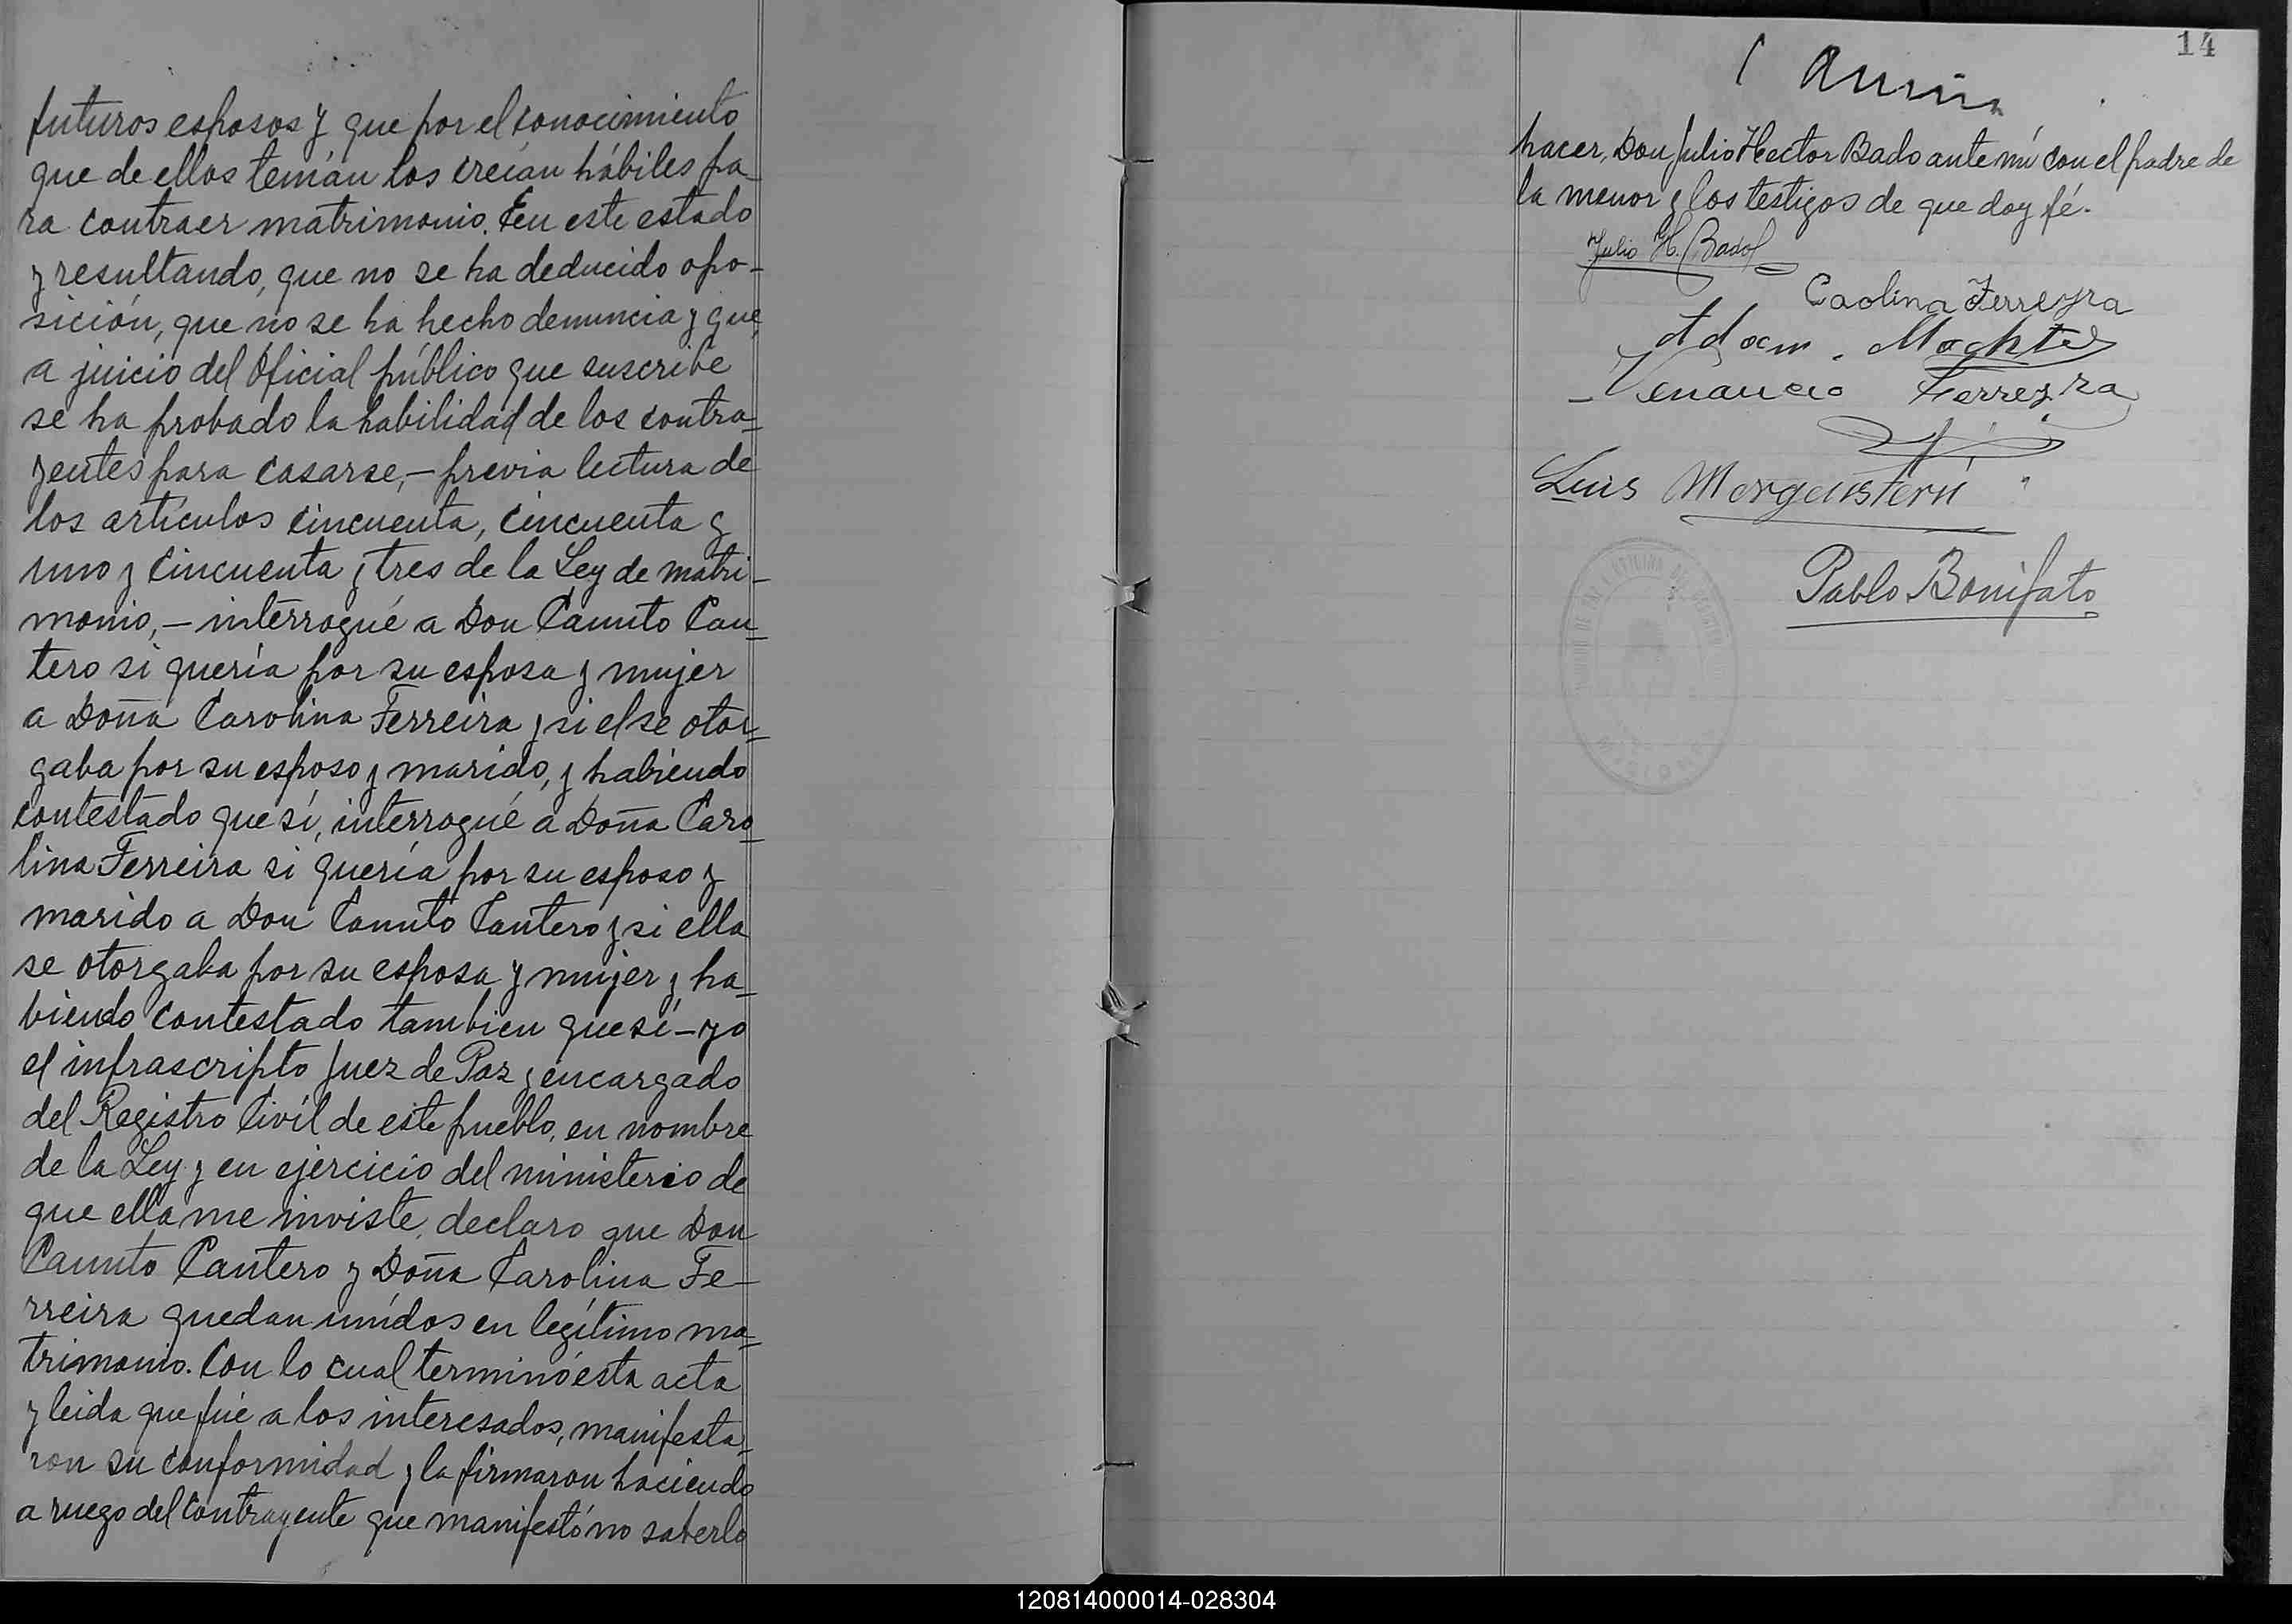 futuros esposos y que por el conocimiento
que de ellos tenían los creían hábiles pa_
ra contraer matrimonio. En este estado
y resultando, que no se ha deducido opo-
sición, que no se ha hecho denuncia y que,
a juicio del Oficial público que suscribe
se ha probado la habilidad de los contra_
yentes para casarse, – previa lectura de
los artículos cincuenta, cincuenta y
uno y cincuenta y tres de la Ley de matri-
monio, – interrogué a Don Canuto Can_
tero si quería por su esposa y mujer
a Doña Carolina Ferreira y si el se otor_
gaba por su esposo y marido, y habiendo
contestado que sí, interrogué a Doña Caro_
lina Ferreira si quería por su esposo y
marido a Don Canuto Cantero y si ella
se otorgaba por su esposa y mujer y ha_
biendo contestado tambien que sí – yo
el infrascripto Juez de Paz y encargado
del Registro Civil de este pueblo, en nombre
de la Ley y en ejercicio del ministerio de
que ella me inviste, declaro que Don
Canuto Cantero y Doña Carolina Fe-
rreira quedan unidos en legítimo ma_
trimonio. Con lo cual terminó esta acta
y leida que fué a los interesados, manifesta_
ron su conformidad y la firmaron haciendo
a ruego del contrayente que manifestó no saberlo
14
hacer, Don Julio Hector Bado ante mí con el padre de
la menor y los testigos de que doy fé.
Julio H. Bado
Caolina Ferreyra
Adam
Venancio Ferreyra
Luis Morgenstern
Pablo Bonifato
120814000014-028304